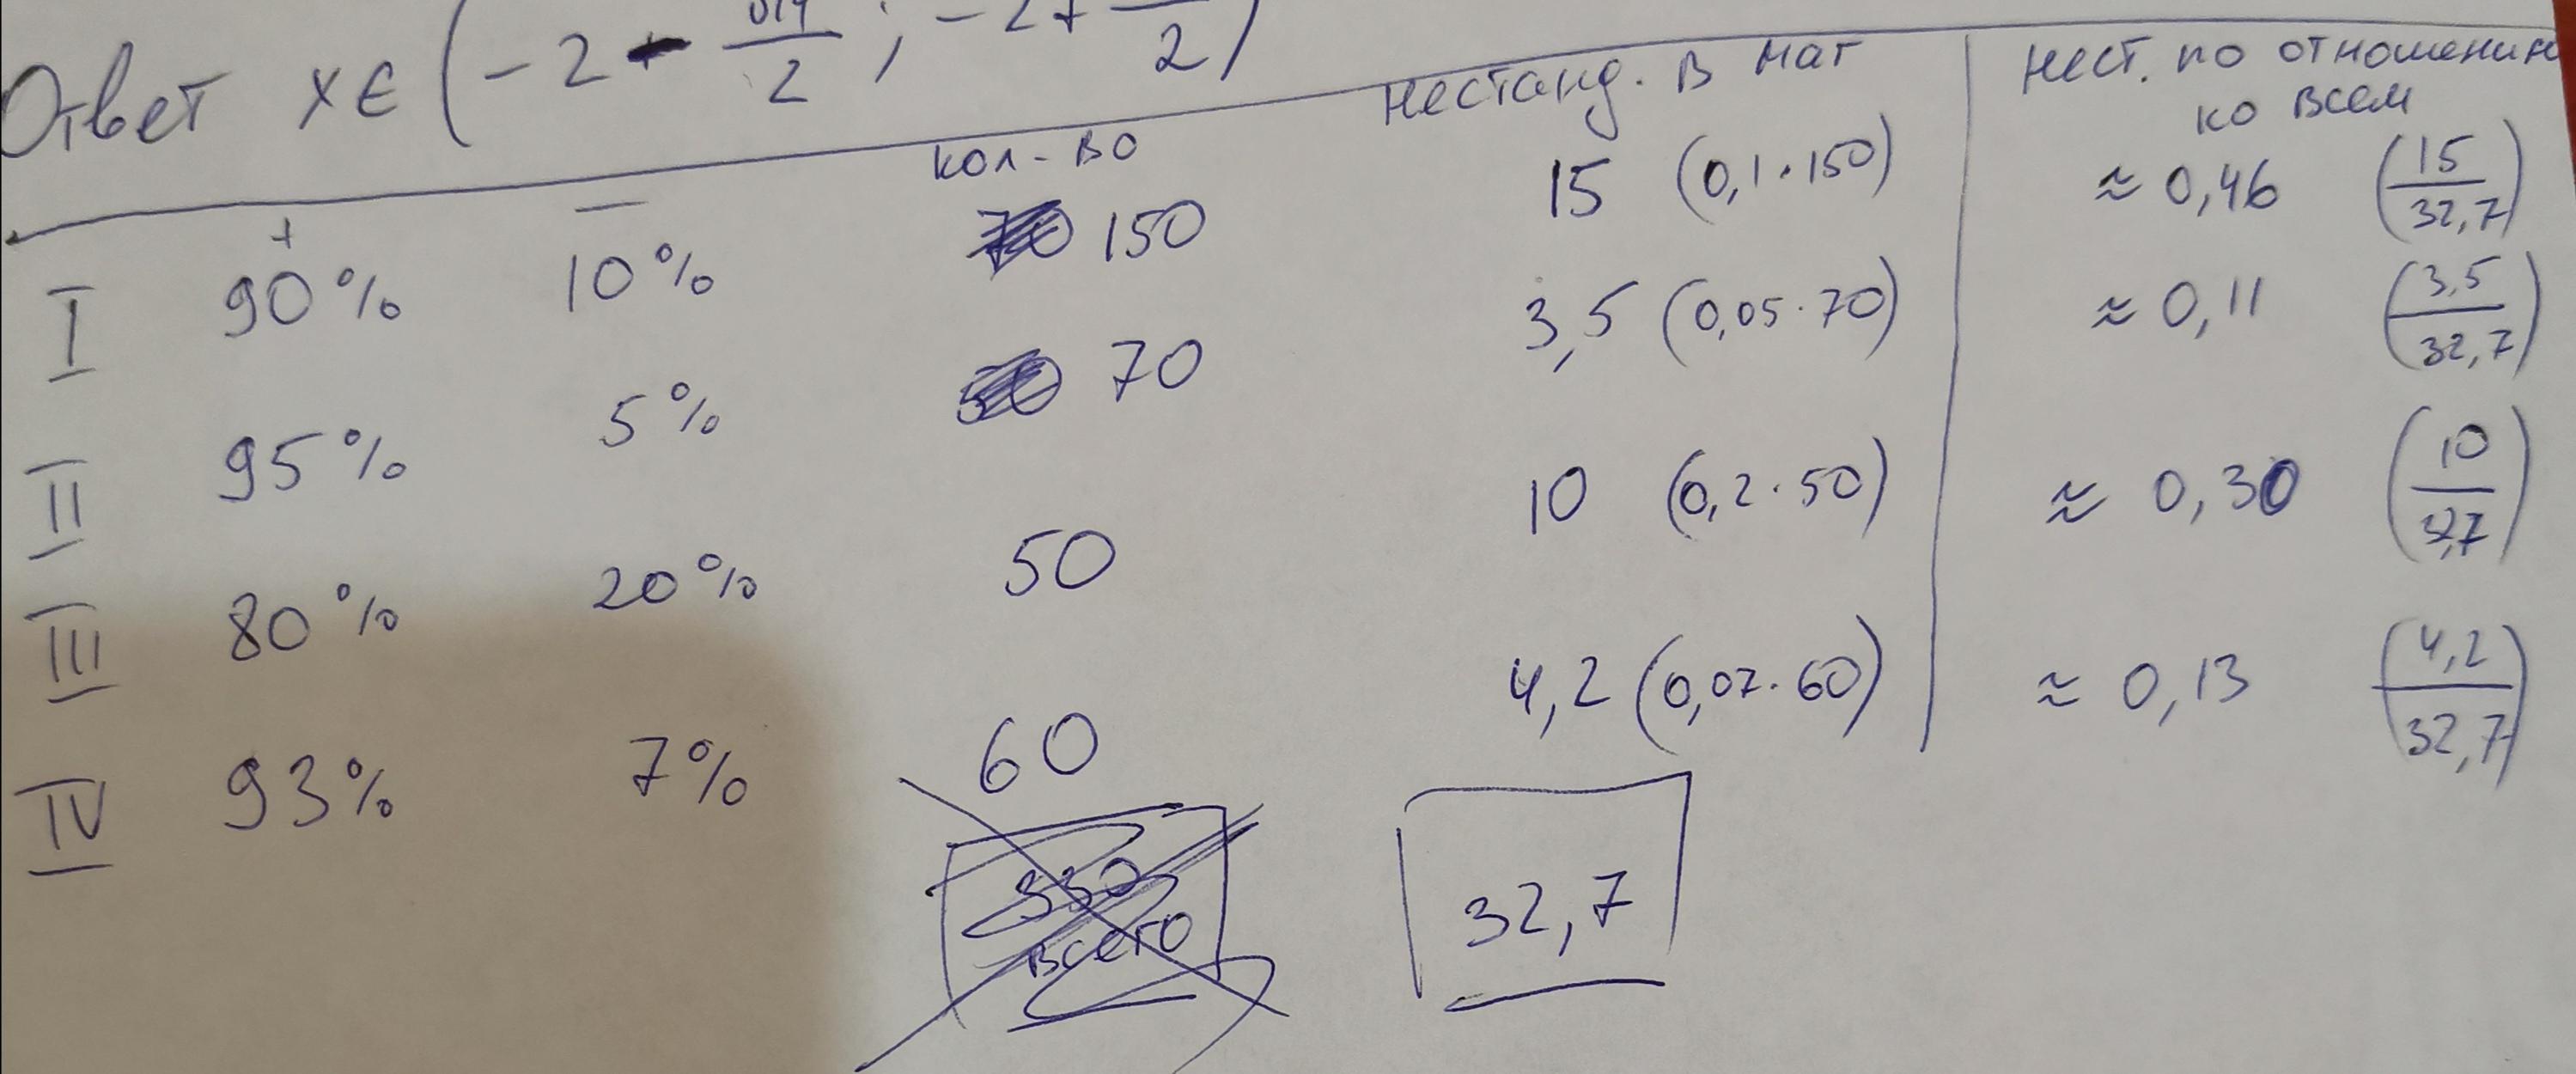 Ответ x∈(-2-  /2; -2+  /2)
кол-во нестанд. в мат нест. по отношению
ко всем
+ −
I 90% 10% 150 15 (0,1·150) ≈0,46 (15/32,7)
II 95% 5% 70 3,5 (0,05·70) ≈0,11 (3,5/32,7)
III 80% 20% 50 10 (0,2·50) ≈0,30 (10/32,7)
IV 93% 7% 60 4,2 (0,07·60) ≈0,13 (4,2/32,7)
всего 32,7